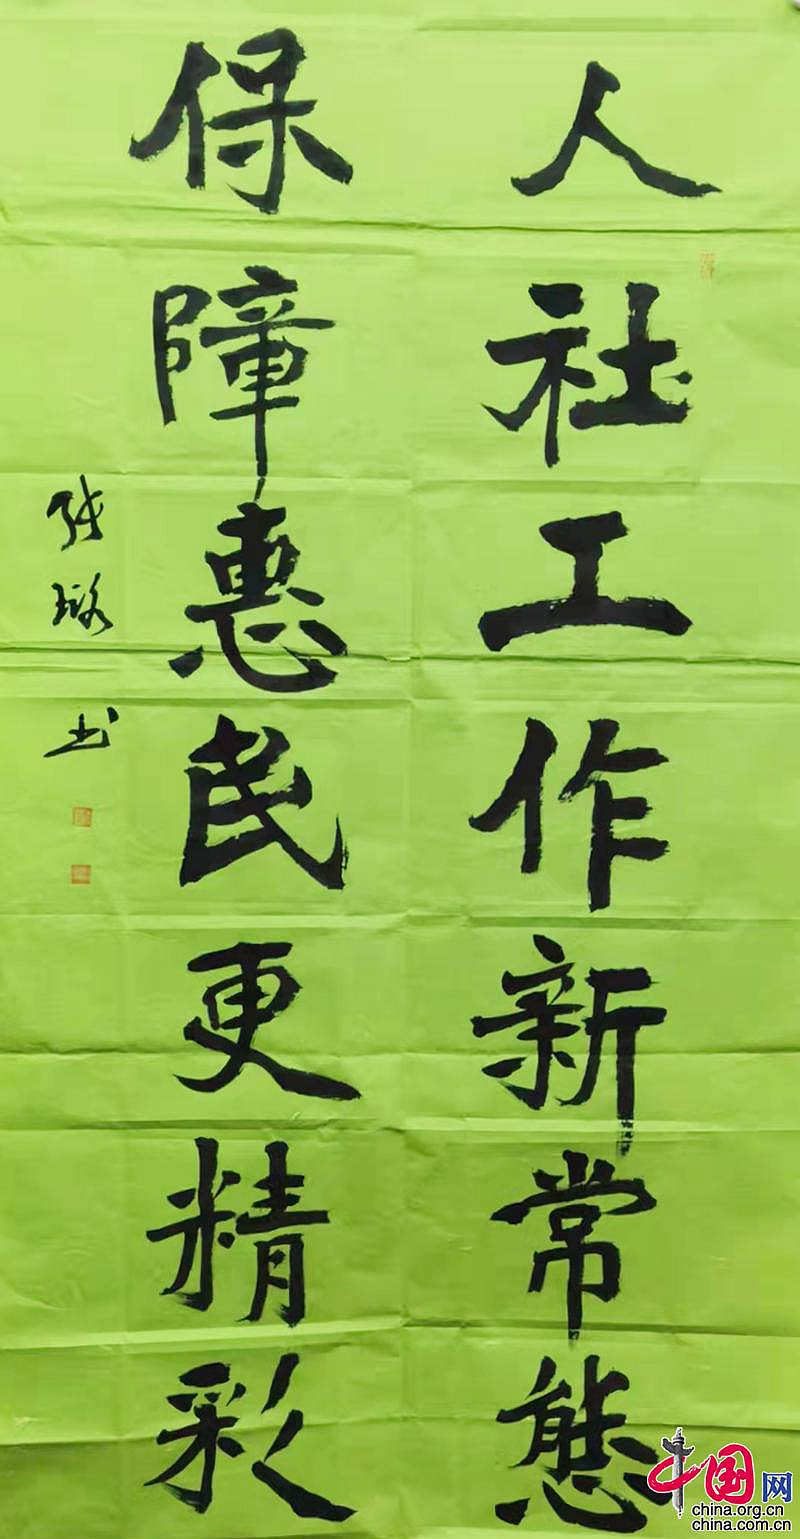 人社工作新常態
保障惠民更精彩
张璐书
中国网
china.org.cn
china.com.cn